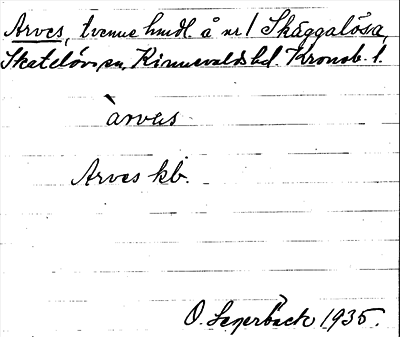 Arves, tvenne hmdl. å nr 1 Skäggalösa,
Skatelövs sn, Kinnevalds hd. Kronob. l.
àrvəs
Arves kb.
O. Lagerbäck 1935.